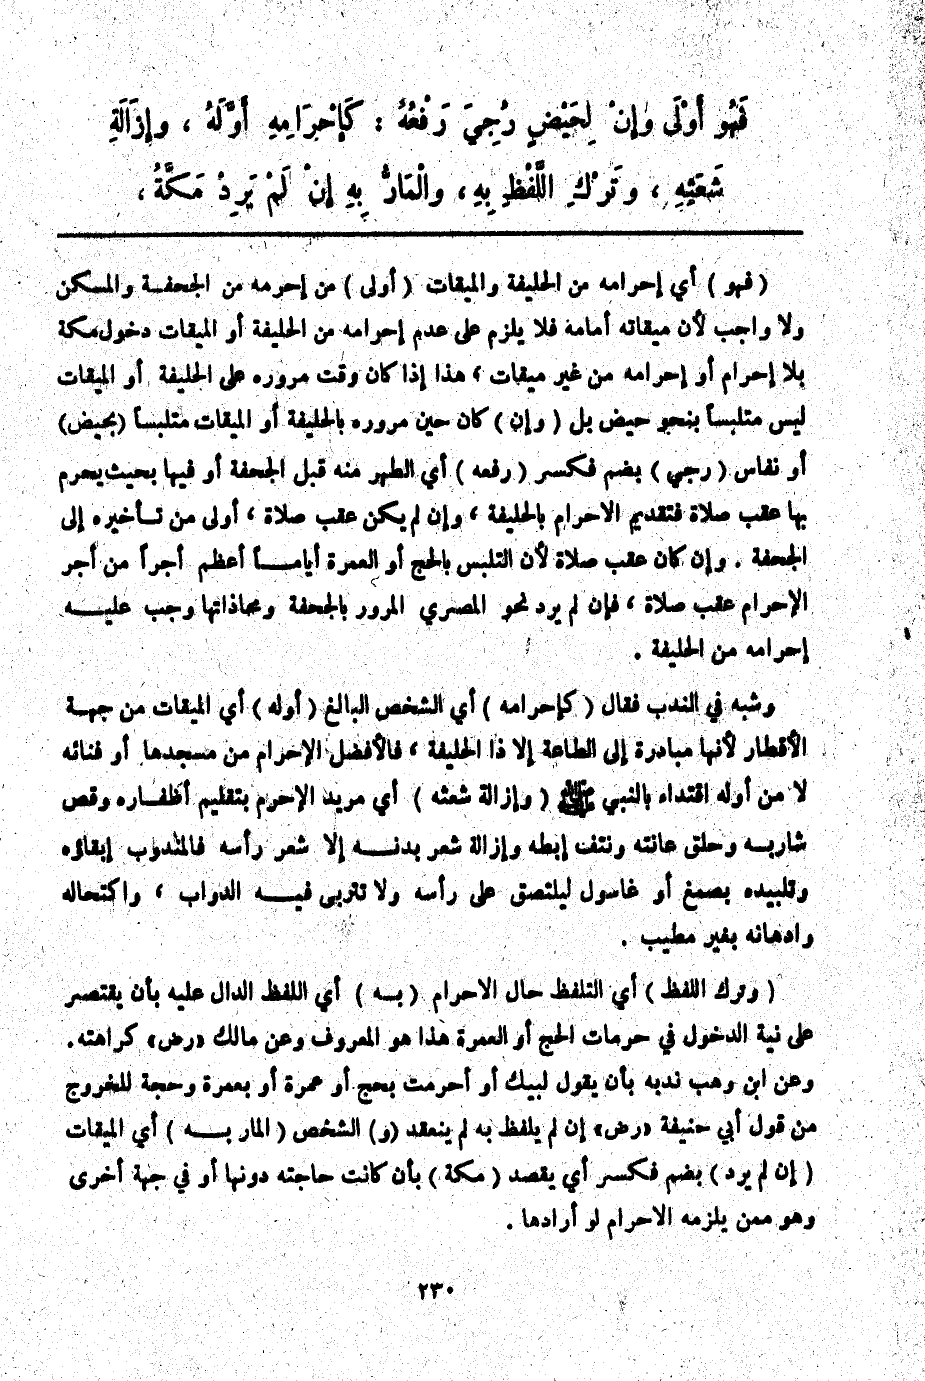 فَهُو أَوْلَى وَإِنْ لِحَيْضٍ رُجِيَ رَفْعُهُ : كَإِحْرَامِهِ أَوَّلَهُ ، وإِزَالَةِ
شَعَثِهِ ، وتَرْكِ اللَّفْظِ بِهِ، والْمَارُّ بِهِ إِنْ لَمْ يَرِدْ مَكَّةُ ،
( فهو ) أي إحرامه من الحليفة والميقات ( أولى ) من إحرمه من الجحفـة والمسكن
ولا واجب لأن ميقاته أمامه فلا يلزم على عدم إحرامه من الحليفة أو الميقات دخول مكة
بلا إحرام أو إحرامه من غير ميقات ، هذا إذا كان وقت مروره على الحليفة أو الميقات
ليس متلبساً بنحو حيض بل ( وإن ) كان حين مروره بالحليفة أو الميقات متلبساً (بحيض)
أو نفاس ( رجي ) بضم فكسر ( رفعه ) أي الطهر منه قبل الجحفة أو فيها بحيث يحرم
بها عقب صلاة فتقديم الاحرام بالحليفة ، وإن لم يكن عقب صلاة ، أولى من تـأخيره إلى
الجحفة . وإن كان عقب صلاة لأن التلبس بالحج أو العمرة أيامـــاً أعظم أجراً من أجر
الإحرام عقب صلاة ، فإن لم يرد نحو المصري المرور بالجحفة ومحاذاتها وجب عليـــه
إحرامه من الحليفة .
وشبه في الندب فقال ( كإحرامه ) أي الشخص البالغ ( أوله ) أي الميقات من جهـة
الأقطار لأنها مبادرة إلى الطاعة إلا ذا الحليفة ، فالأفضل الإحرام من مسجدها أو فنائه
لا من أوله اقتداء بالنبي ﷺ ( وإزالة شعثه ) أي مريد الإحرم بتقليم أظفـاره وقص
شاربـه وحلق عانته ونتف إبطه وإزالة شعر بدنـــه إلا شعر رأسه فالمندوب إبقاؤه
وتلبيده بصمغ أو غاسول ليلتصق على رأسه ولا تتربى فيـــه الدواب ، واكتحاله
وادهانه بغير مطيب .
( وترك اللفظ ) أي التلفظ حال الاحرام ( بـه ) أي اللفظ الدال عليه بأن يقتصر
على نية الدخول في حرمات الحج أو العمرة هذا هو المعروف وعن مالك «رض» كراهته.
وعن ابن وهب ندبه بأن يقول لبيك أو أحرمت بحج أو عمرة أو بعمرة وحجة للخروج
من قول أبي حنيفة «رض» إن لم يلفظ به لم ينعقد (و) الشخص ( المار بـــه ) أي الميقات
( إن لم يرد ) بضم فكسر أي يقصد ( مكة ) بأن كانت حاجته دونها أو في جهة أخرى
وهو ممن يلزمه الاحرام لو أرادها .
٢٣٠